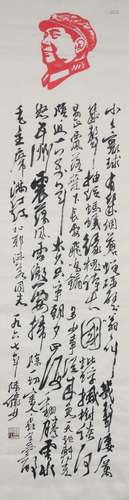 小小寰球有几个苍蝇碰壁嗡嗡叫几声凄厉
几声抽泣蚂蚁缘槐夸大国蚍蜉撼树谈何
易正西风落叶下长安飞鸣镝多少事从来急天地转光阴
迫一万年太久只争朝夕四海翻腾云水
怒五洲震荡风雷激要扫除一切害人虫全无敌
毛主席满江红 和郭沫若同志 一九六六年